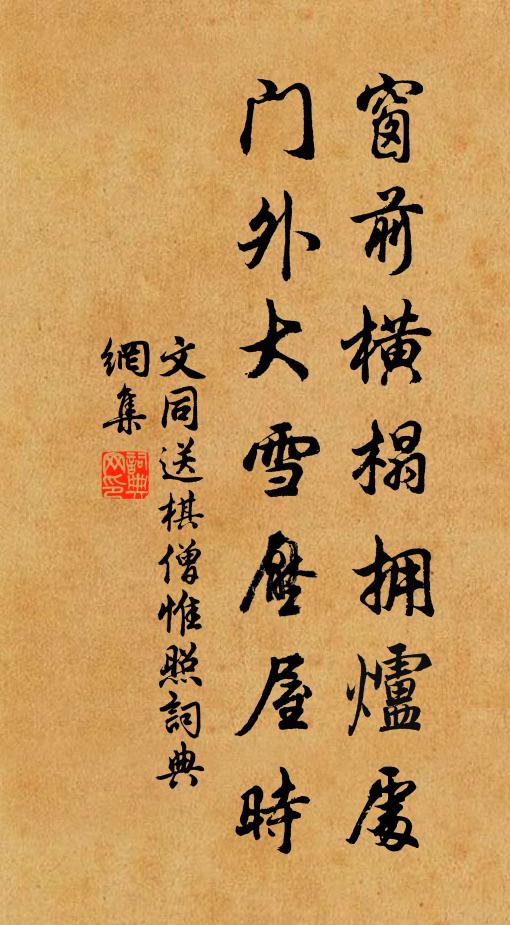 窗前橫榻拥爐處
门外大雪壓屋時
文同送棋僧惟照詞典
網集
詞典
网印